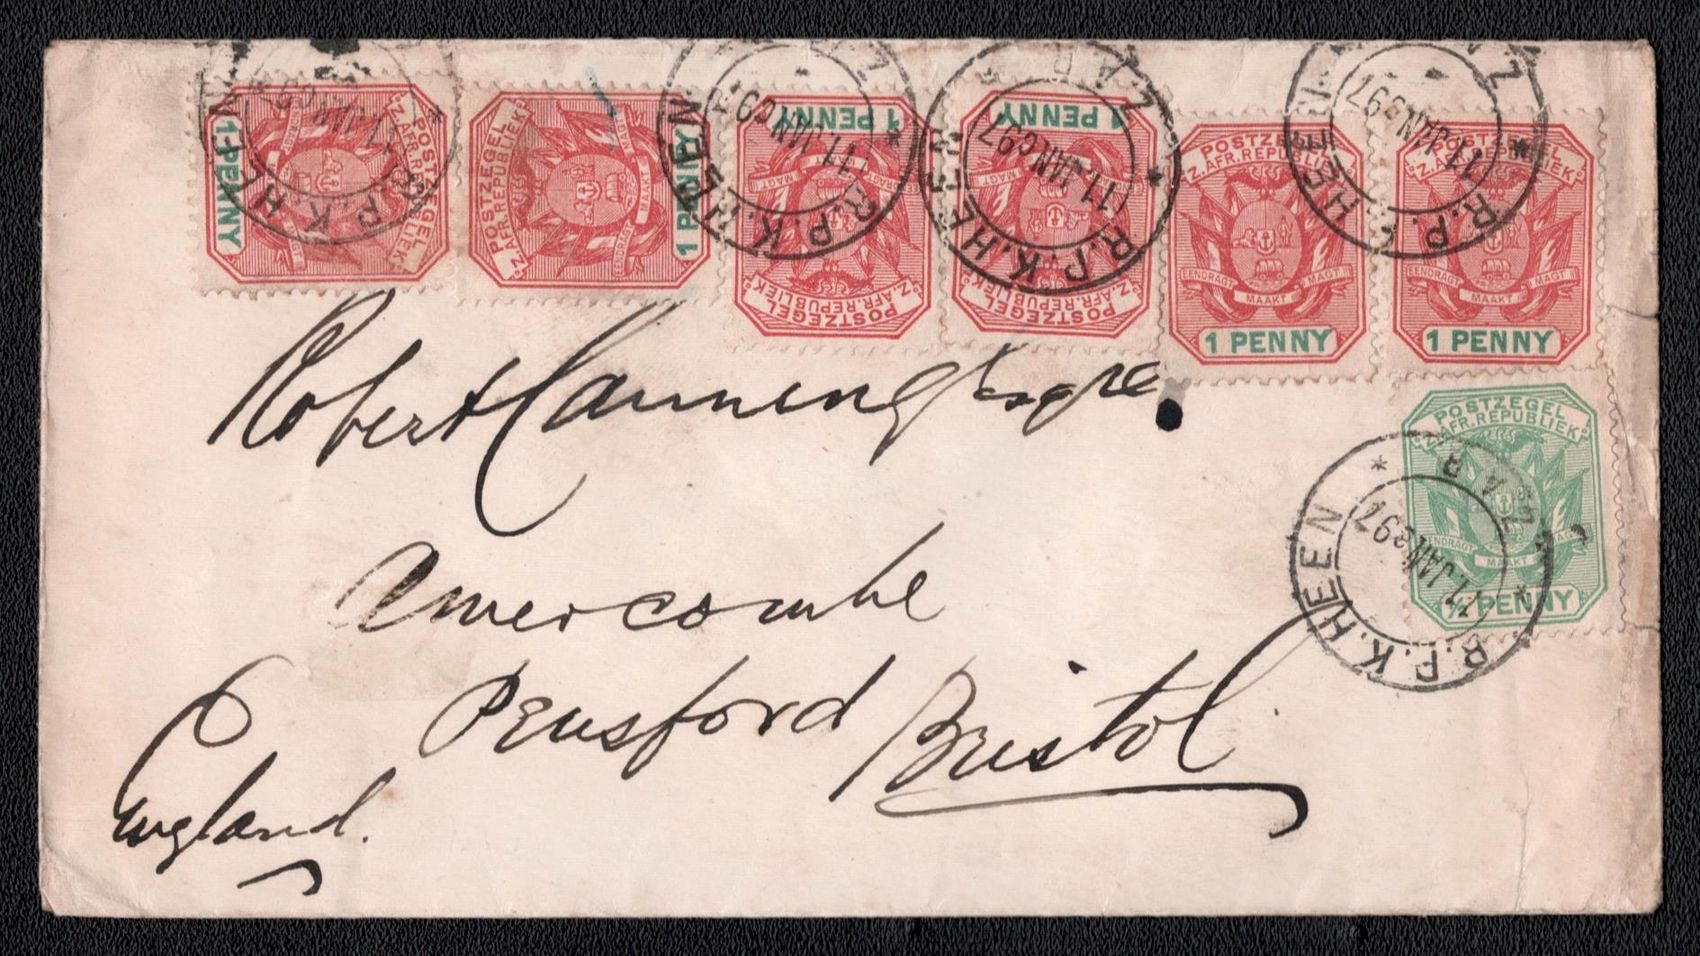 POSTZEGEL
Z. AFR. REPUBLIEK
1 PENNY
POSTZEGEL
Z. AFR. REPUBLIEK
1 PENNY
POSTZEGEL
Z. AFR. REPUBLIEK
EENDRAGT MAAKT MAGT
1 PENNY
POSTZEGEL
Z. AFR. REPUBLIEK
EENDRAGT MAAKT MAGT
1 PENNY
POSTZEGEL
Z. AFR. REPUBLIEK
EENDRAGT MAAKT MAGT
1 PENNY
POSTZEGEL
Z. AFR. REPUBLIEK
EENDRAGT MAAKT MAGT
1 PENNY
R.P.K.HEEN
Z.A.R
11 JAN 97
Robert Canning Esqre
POSTZEGEL
Z. AFR. REPUBLIEK
EENDRAGT MAAKT MAGT
½ PENNY
R.P.K.HEEN
Z.A.R
11 JAN 97
Pensford Bristol
England.